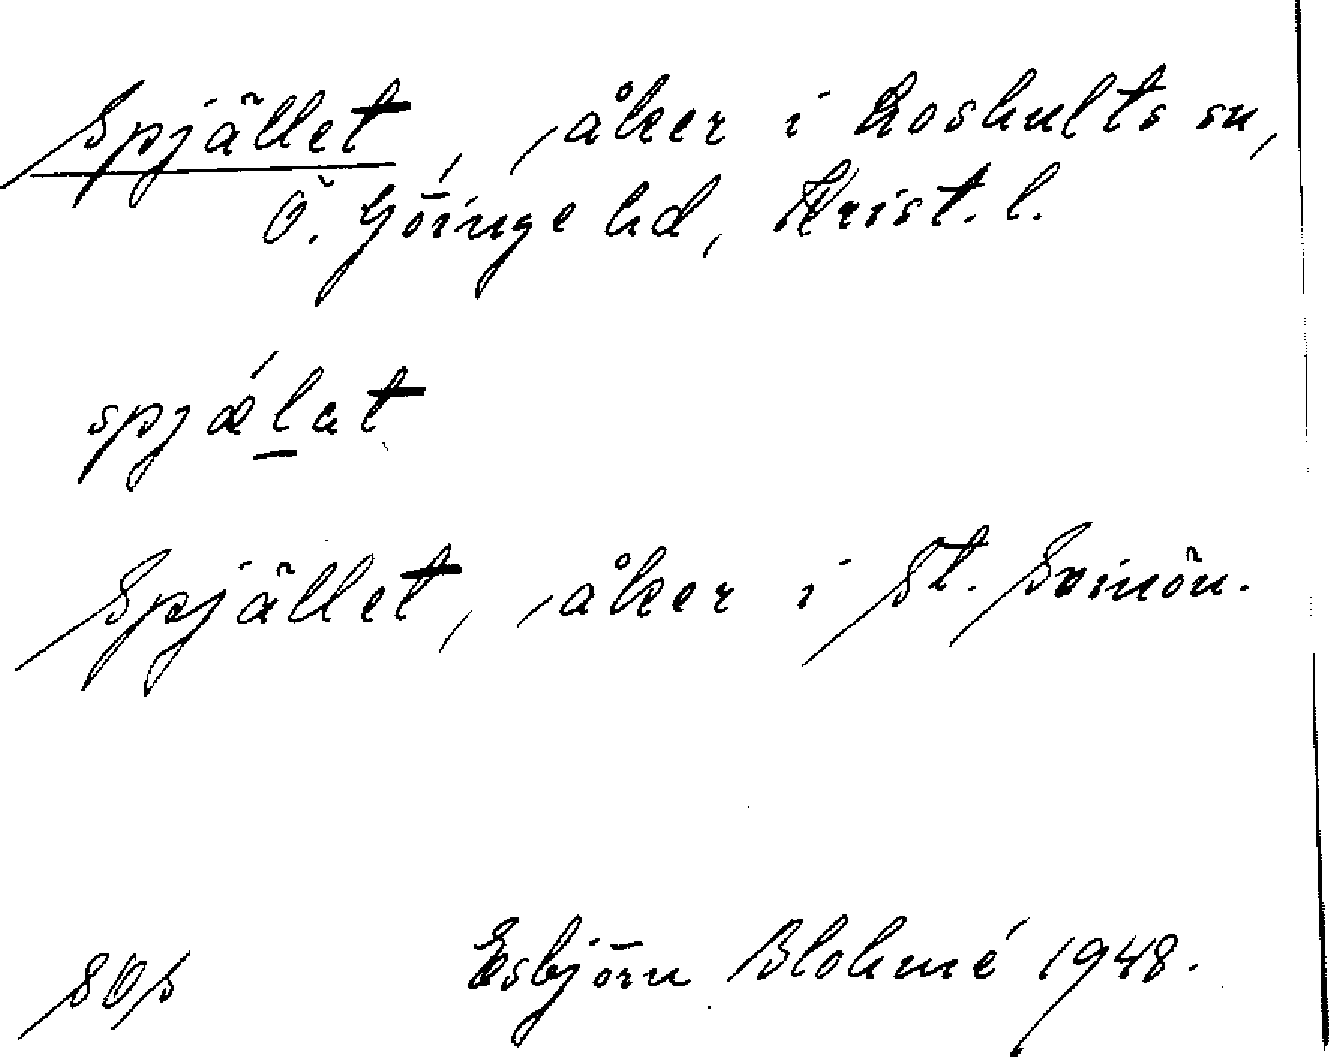 Spjället, åker i Loshults sn,
Ö. Göinge hd, Krist. l.
spjǽlat
Spjället, åker i St. Svinön.
SOs
Esbjörn Blohmé 1948.